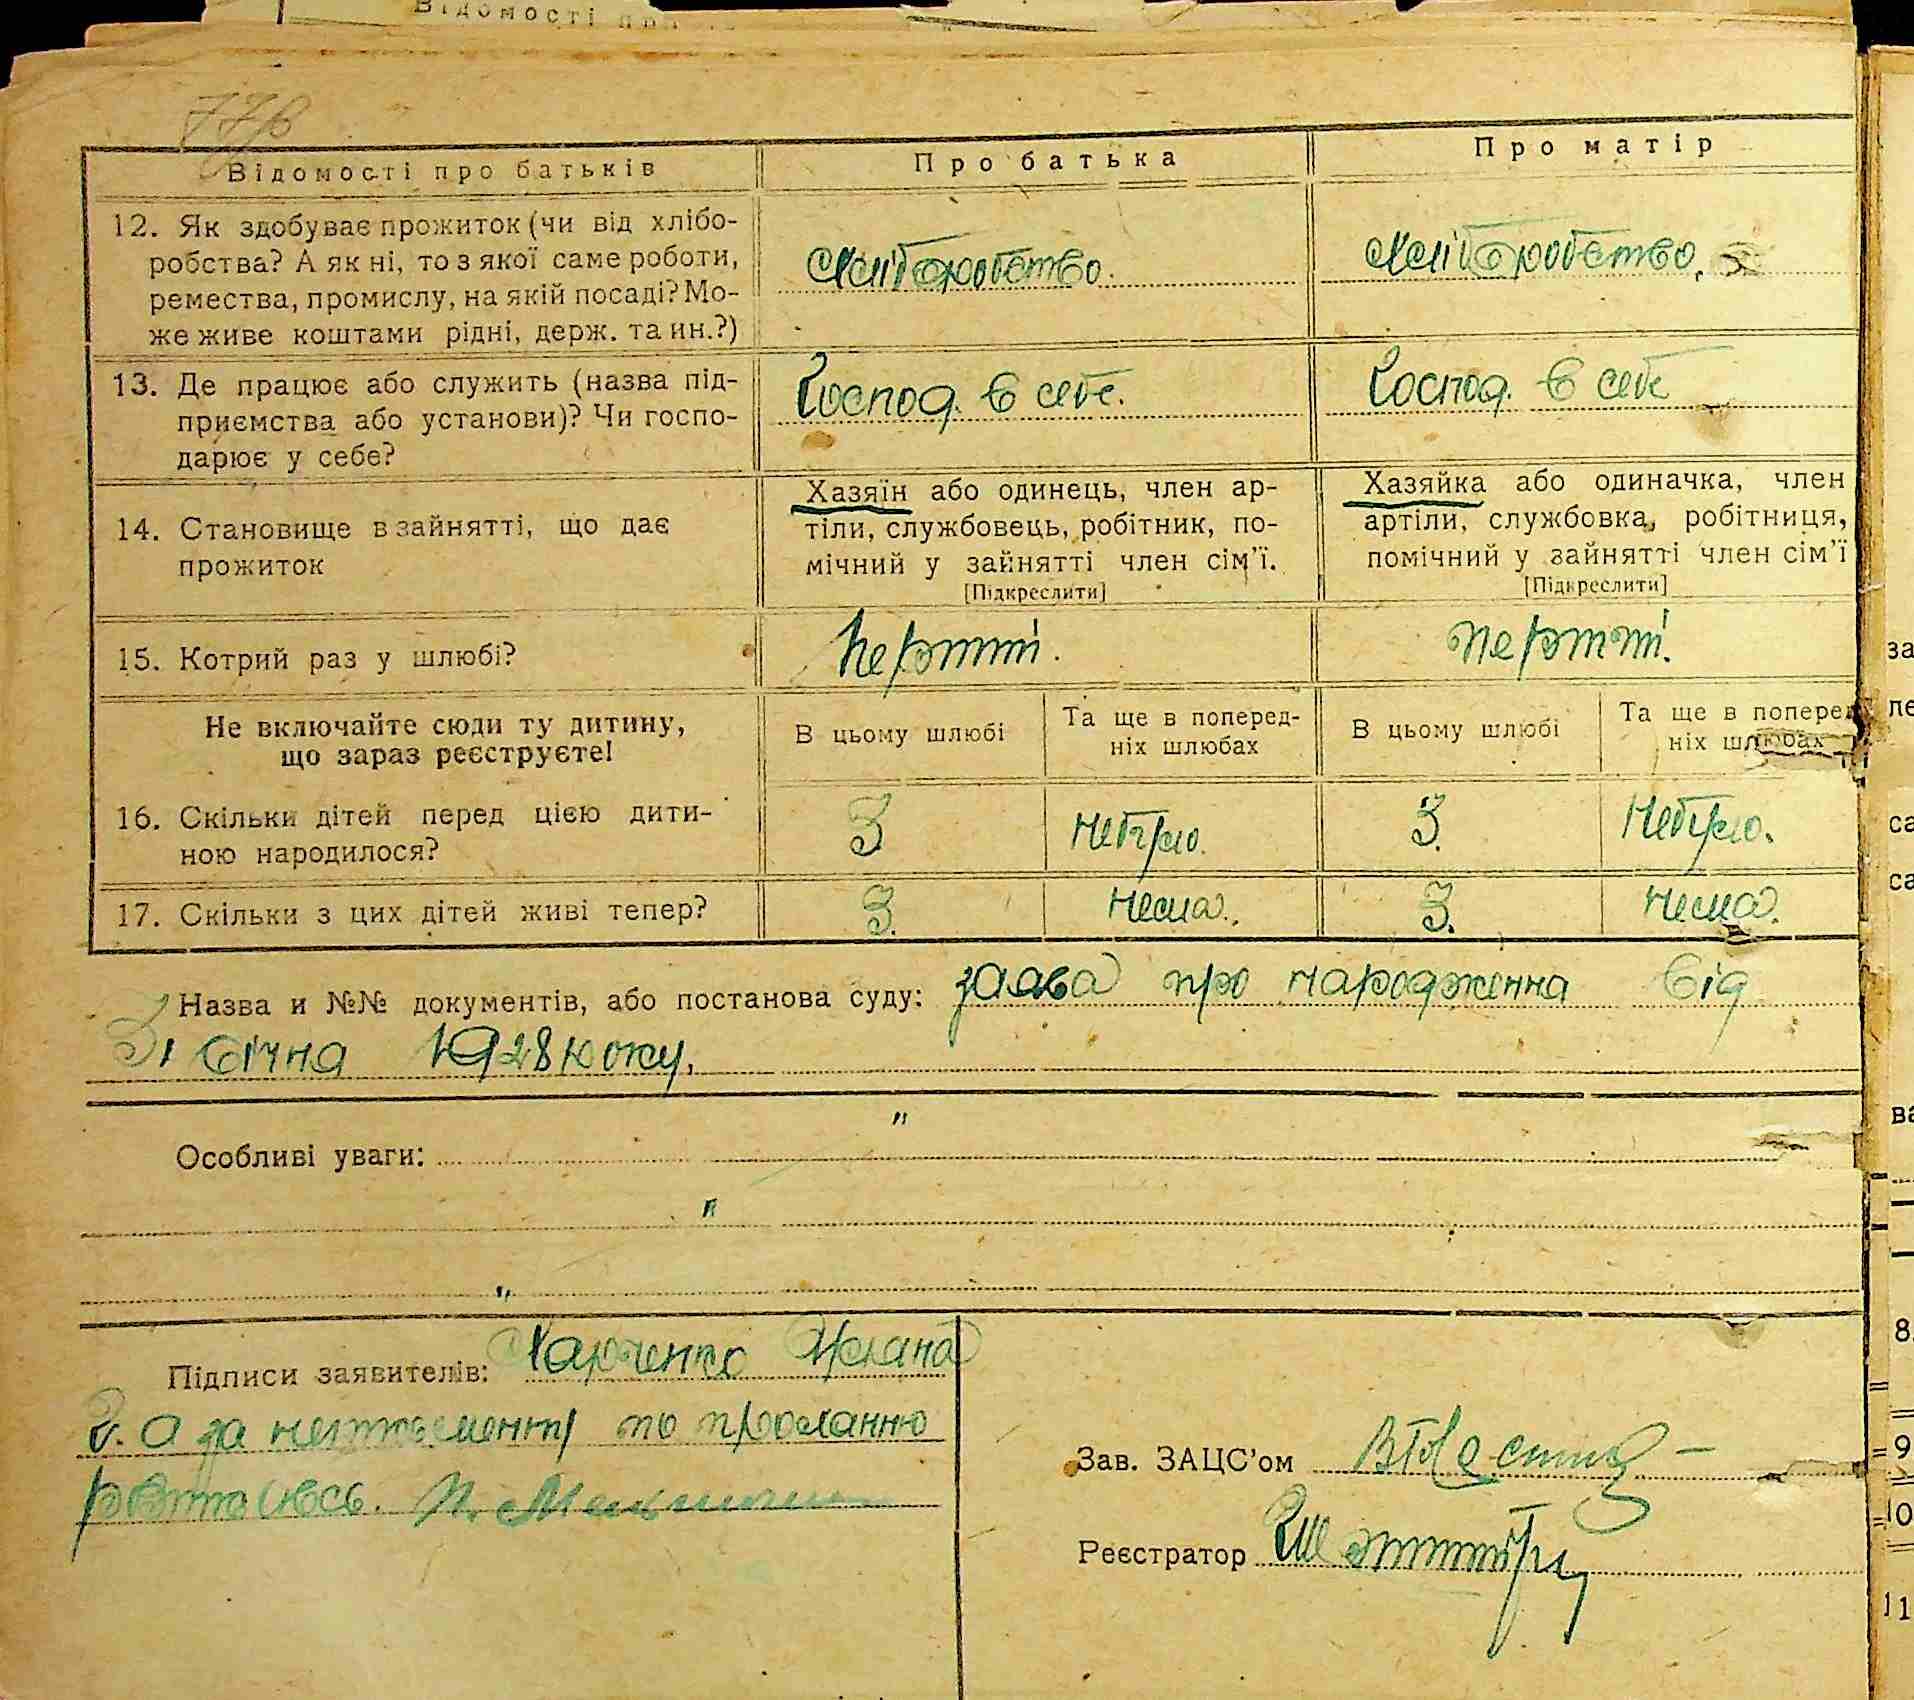 Відомості про
77
Відомості про батьків
Про батька
Про матір
12. Як здобуває прожиток (чи від хлібо-
робства? А як ні, то з якої саме роботи,
ремества, промислу, на якій посаді? Мо-
же живе коштами рідні, держ. та ин.?)
Хліборобство.
Хліборобство,
13. Де працює або служить (назва під-
приємства або установи)? Чи госпо-
дарює у себе?
Господ. в себе.
Господ. в себе
14. Становище в зайнятті, що дає
прожиток
Хазяїн або одинець, член ар-
тіли, службовець, робітник, по-
мічний у зайнятті член сім’ї.
[Підкреслити]
Хазяйка або одиначка, член
артіли, службовка, робітниця,
помічний у зайнятті член сім’ї
[Підкреслити]
15. Котрий раз у шлюбі?
Не включайте сюди ту дитину,
що зараз реєструєте!
В цьому шлюбі
Та ще в поперед-
ніх шлюбах
В цьому шлюбі
Та ще в поперед
ніх шлюбах
16. Скільки дітей перед цією дити-
ною народилося?
3
Небуло.
3.
Небуло.
17. Скільки з цих дітей живі тепер?
3.
Нема.
3.
Нема.
Назва и №№ документів, або постанова суду: заява про народження від
3, січня 1928 року.
"
Особливі уваги:
"
"
Підписи заявителів: Харченко
а за
Зав. ЗАЦС’ом
Реєстратор
за
ле
са
са
ва
8.
9
10
11